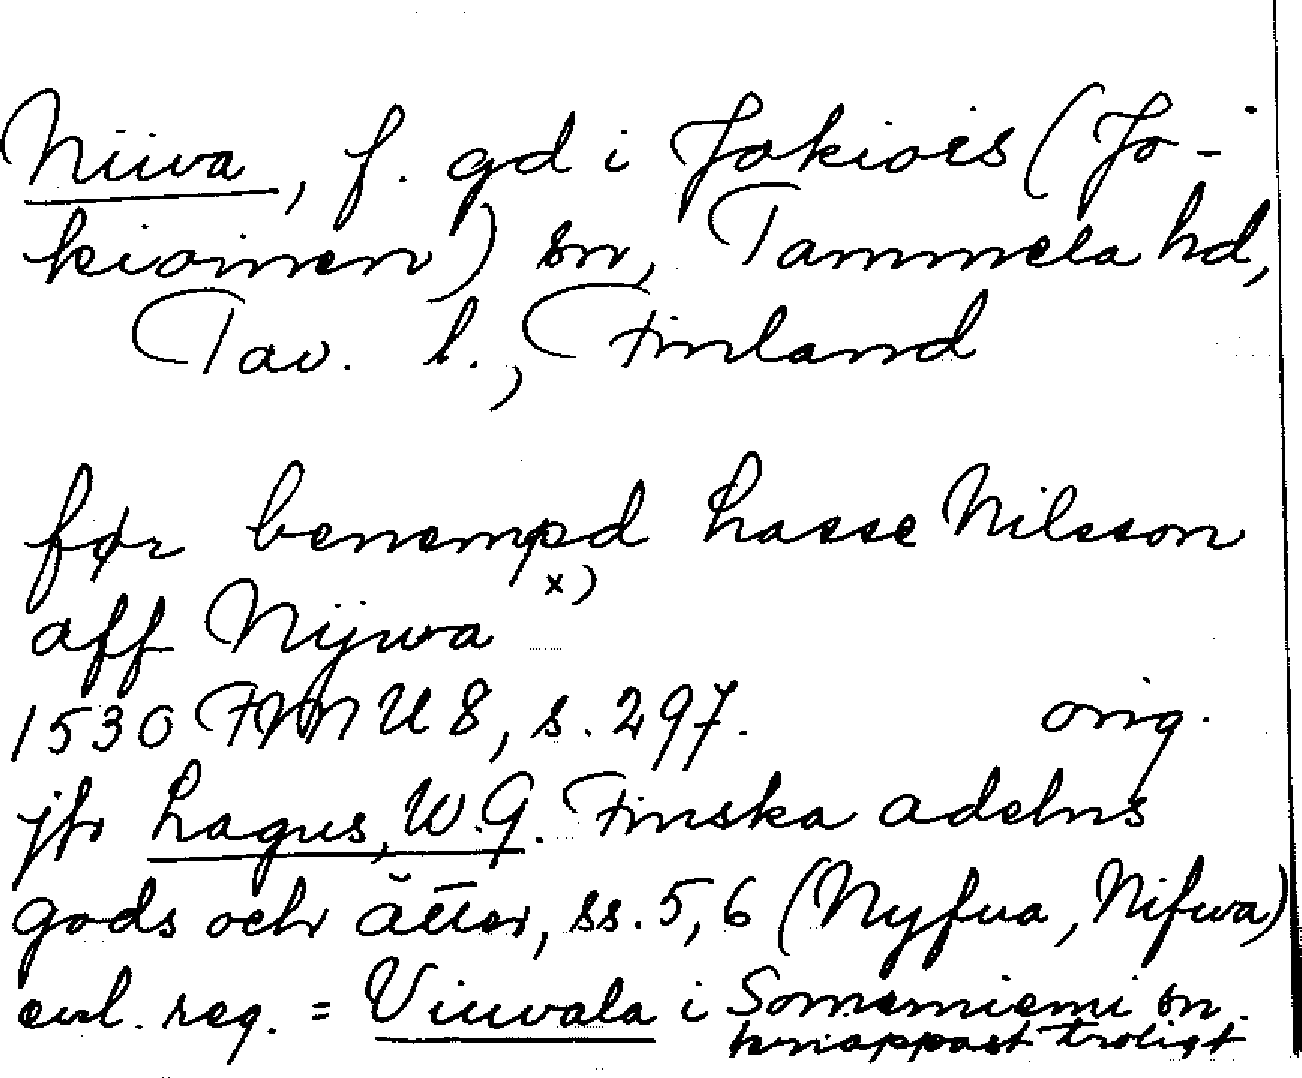 Niiwa, f. gd i Jokiois (Jo-
kioinen) sn, Tammela hd,
Tav. l., Finland
før benempd Lasse Nilsson
x)
aff Nijwa
1530 FMU 8, s. 297. orig.
jfr Lagus, W.G. Finska adelns
gods och ätter, ss. 5, 6 (Nyfua, Nifwa)
enl. reg. = Viuvala i Somerniemi sn.
knappast troligt